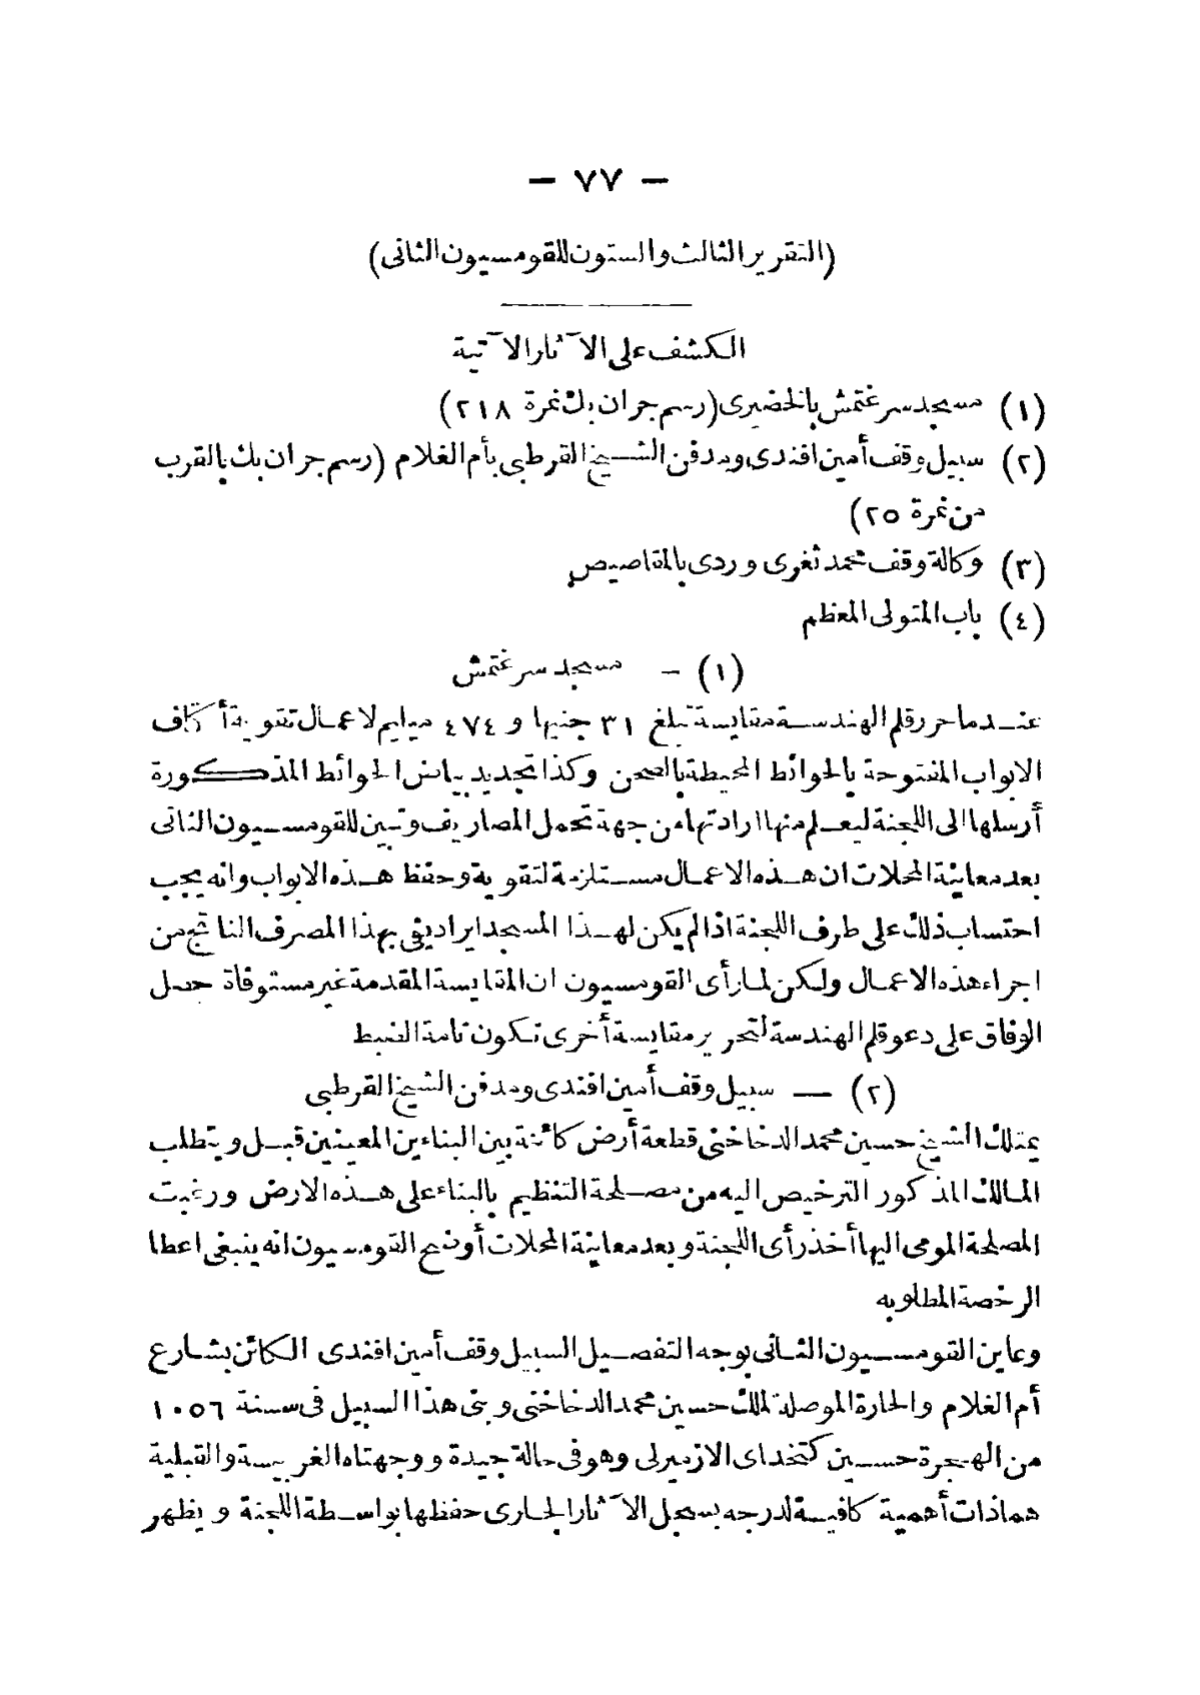 — ٧٧ —
(التقرير الثالث والستون للقومسيون الثانى)
الكشف على الآثار الآتية
(١) مسجد سرغتمش بالخضيرى (رسم جران بك نمرة ٢١٨)
(٢) سبيل وقف أمين افندى ومدفن الشيخ القرطبى بأم الغلام (رسم جران بك بالقرب
من نمرة ٢٥)
(٣) وكالة وقف محمد ثغرى وردى بالمقاصيص
(٤) باب المتولى المعظم
(١) — مسجد سرغتمش
عندما حرر قلم الهندسة مقايسة تبلغ ٣١ جنيها و ٤٧٤ مليم لاعمال تقوية أكتاف
الابواب المفتوحة بالحوائط المحيطة بالصحن وكذا تجديد بياض الحوائط المذكورة
أرسلها الى اللجنة ليعلم منها ارادتها من جهة تحمل المصاريف وتبين للقومسيون الثانى
بعد معاينة المحلات ان هذه الاعمال مستلزمة لتقوية وحفظ هذه الابواب وانه يجب
احتساب ذلك على طرف اللجنة اذا لم يكن لهذا المسجد ايراد يفى بهذا المصرف الناتج من
اجراء هذه الاعمال ولكن لما رأى القومسيون ان المقايسة المقدمة غير مستوفاة حصل
الوفاق على دعو قلم الهندسة لتحرير مقايسة أخرى تكون تامة الضبط
(٢) — سبيل وقف أمين افندى ومدفن الشيخ القرطبى
يمتلك الشيخ حسين محمد الدخاخنى قطعة أرض كائنة بين البناءين المعينين قبل ويتطلب
المالك المذكور الترخيص اليه من مصلحة التنظيم بالبناء على هذه الارض ورغبت
المصلحة المومى اليها أخذ رأى اللجنة وبعد معاينة المحلات أوضح القومسيون انه ينبغى اعطا
الرخصة المطلوبه
وعاين القومسيون الثانى بوجه التفصيل السبيل وقف أمين افندى الكائن بشارع
أم الغلام والحارة الموصلة لملك حسين محمد الدخاخنى وبنى هذا السبيل فى سنة ١٠٥٦
من الهجرة حسين كتخداى الازميرلى وهو فى حالة جيدة ووجهتاه الغربية والقبلية
هما ذات أهمية كافية لدرجه بسجل الآثار الجارى حفظها بواسطة اللجنة ويظهر